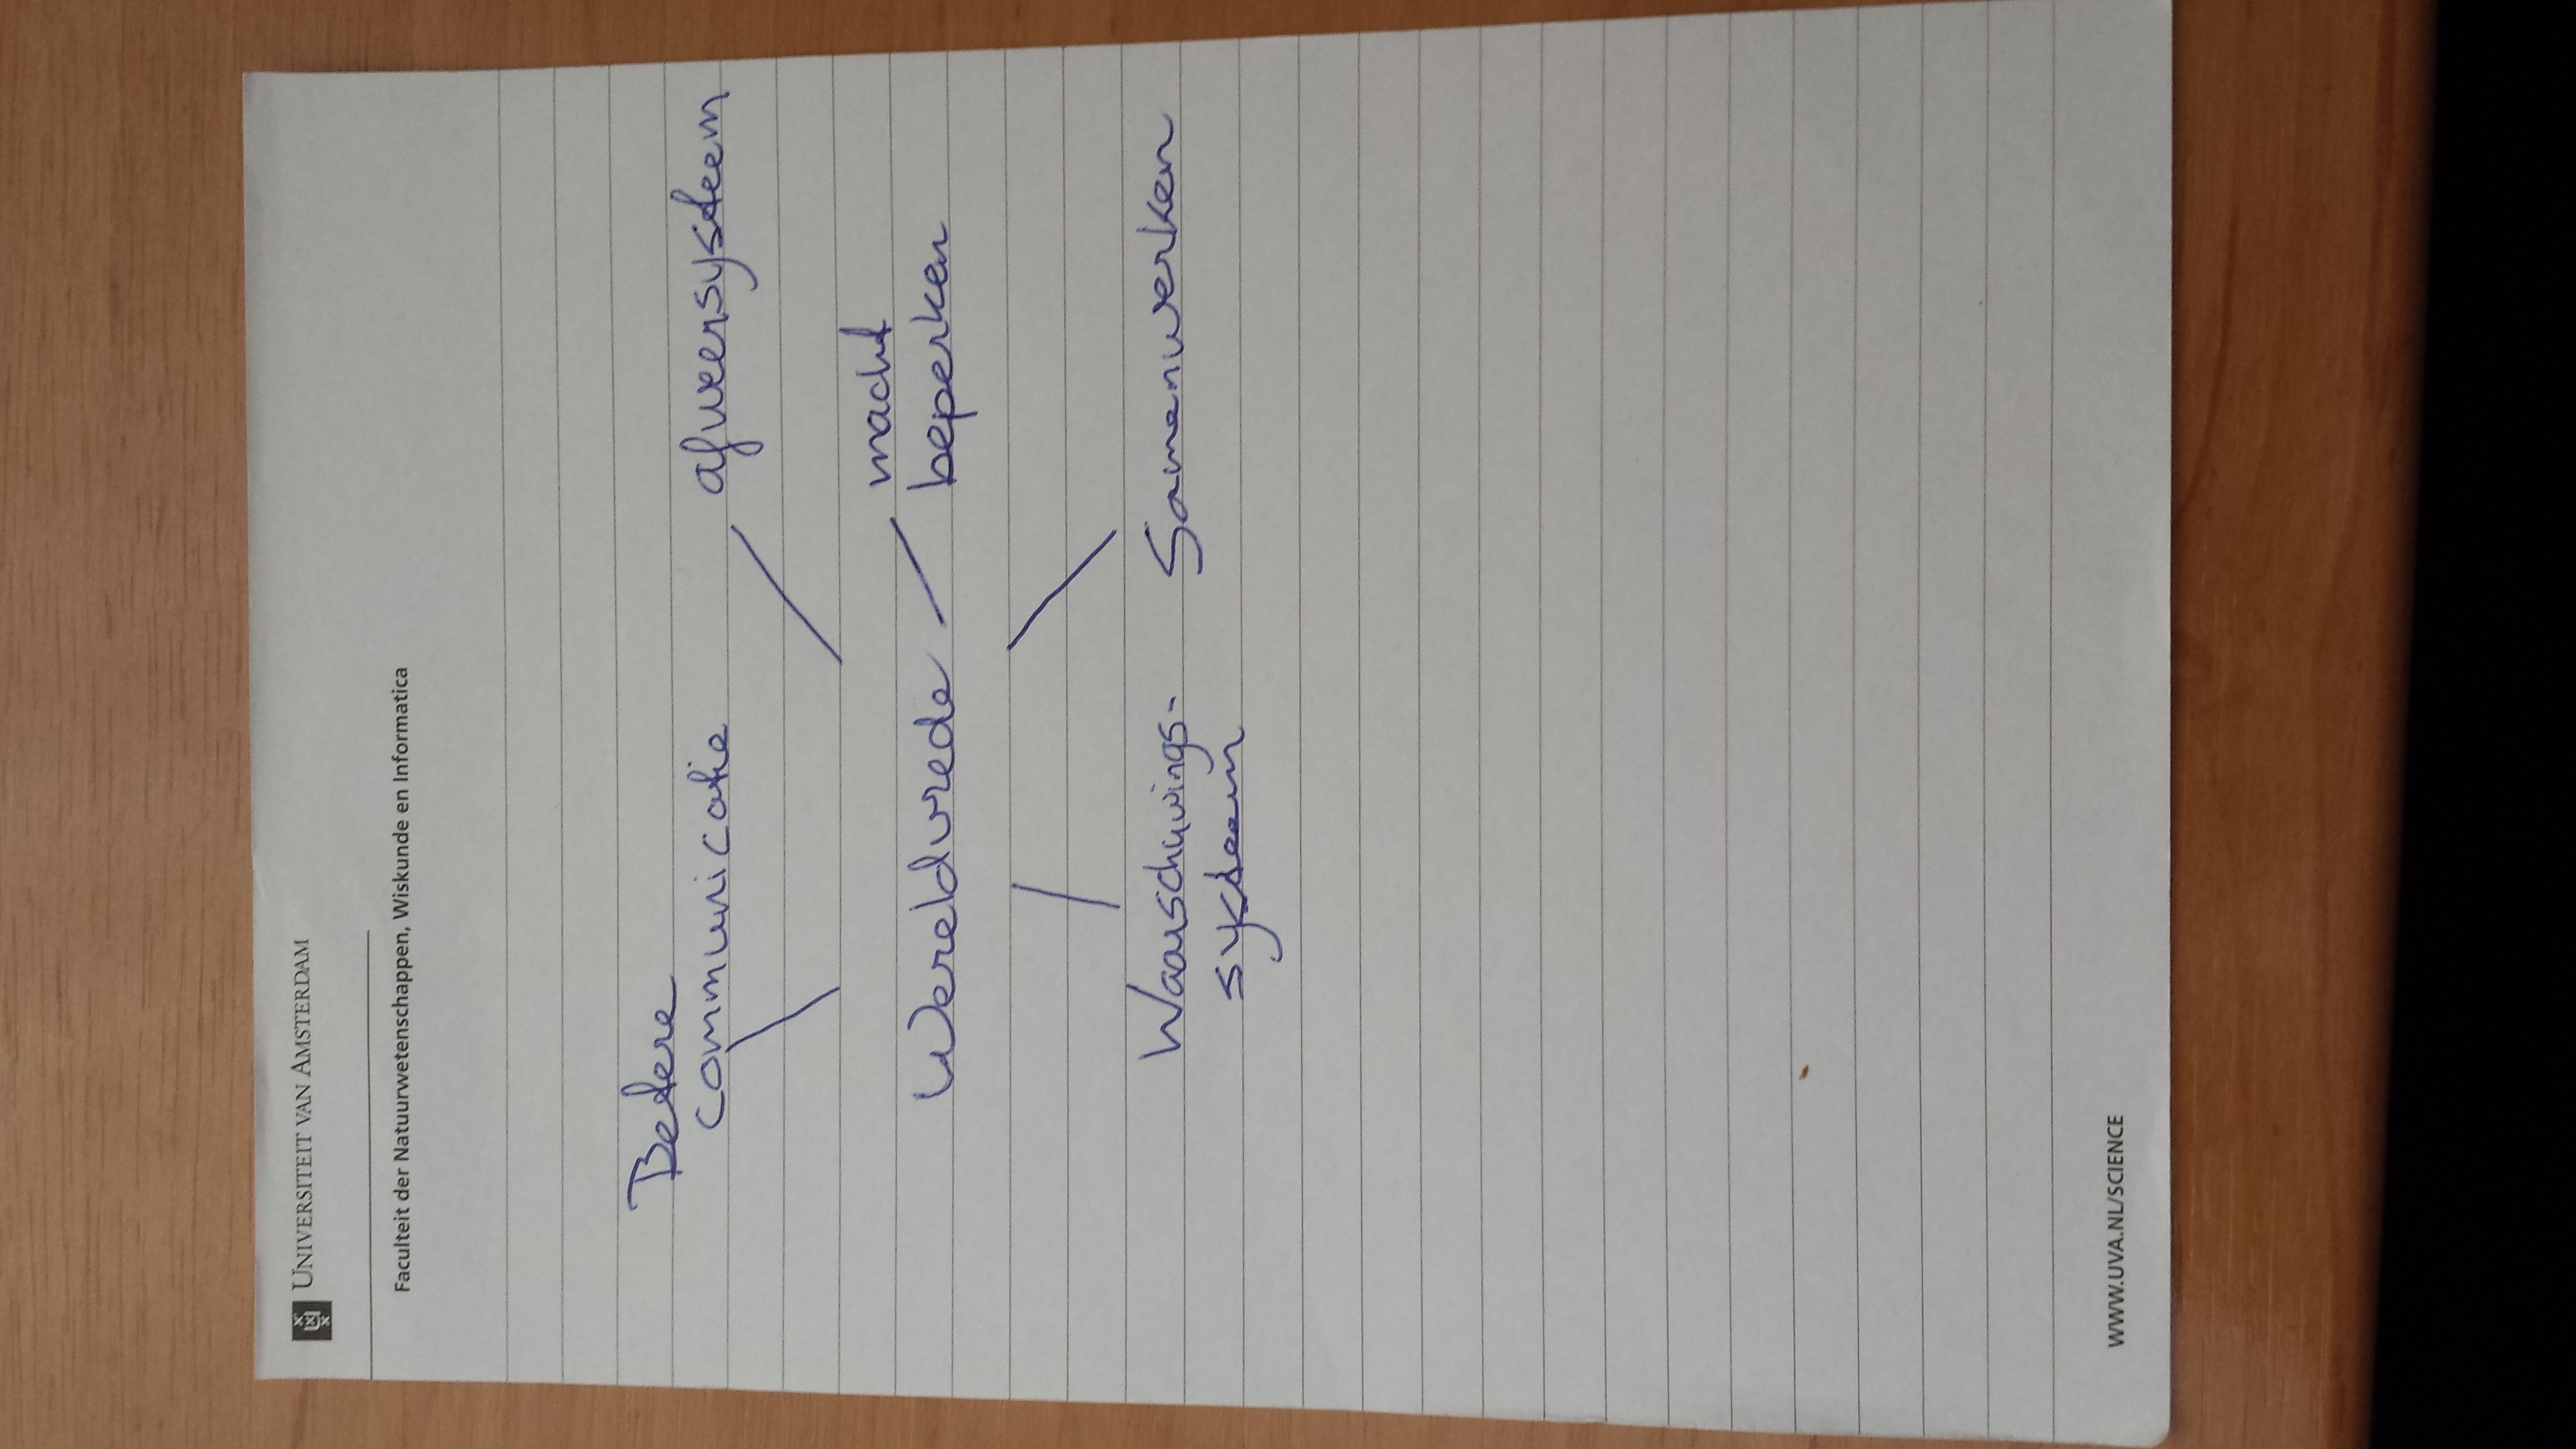 UNIVERSITEIT VAN AMSTERDAM
Faculteit der Natuurwetenschappen, Wiskunde en Informatica
Betere
communicatie
afweersysteem
Wereldvrede
macht
beperken
Waarschuwings-
systeem
Samenwerken
WWW.UVA.NL/SCIENCE